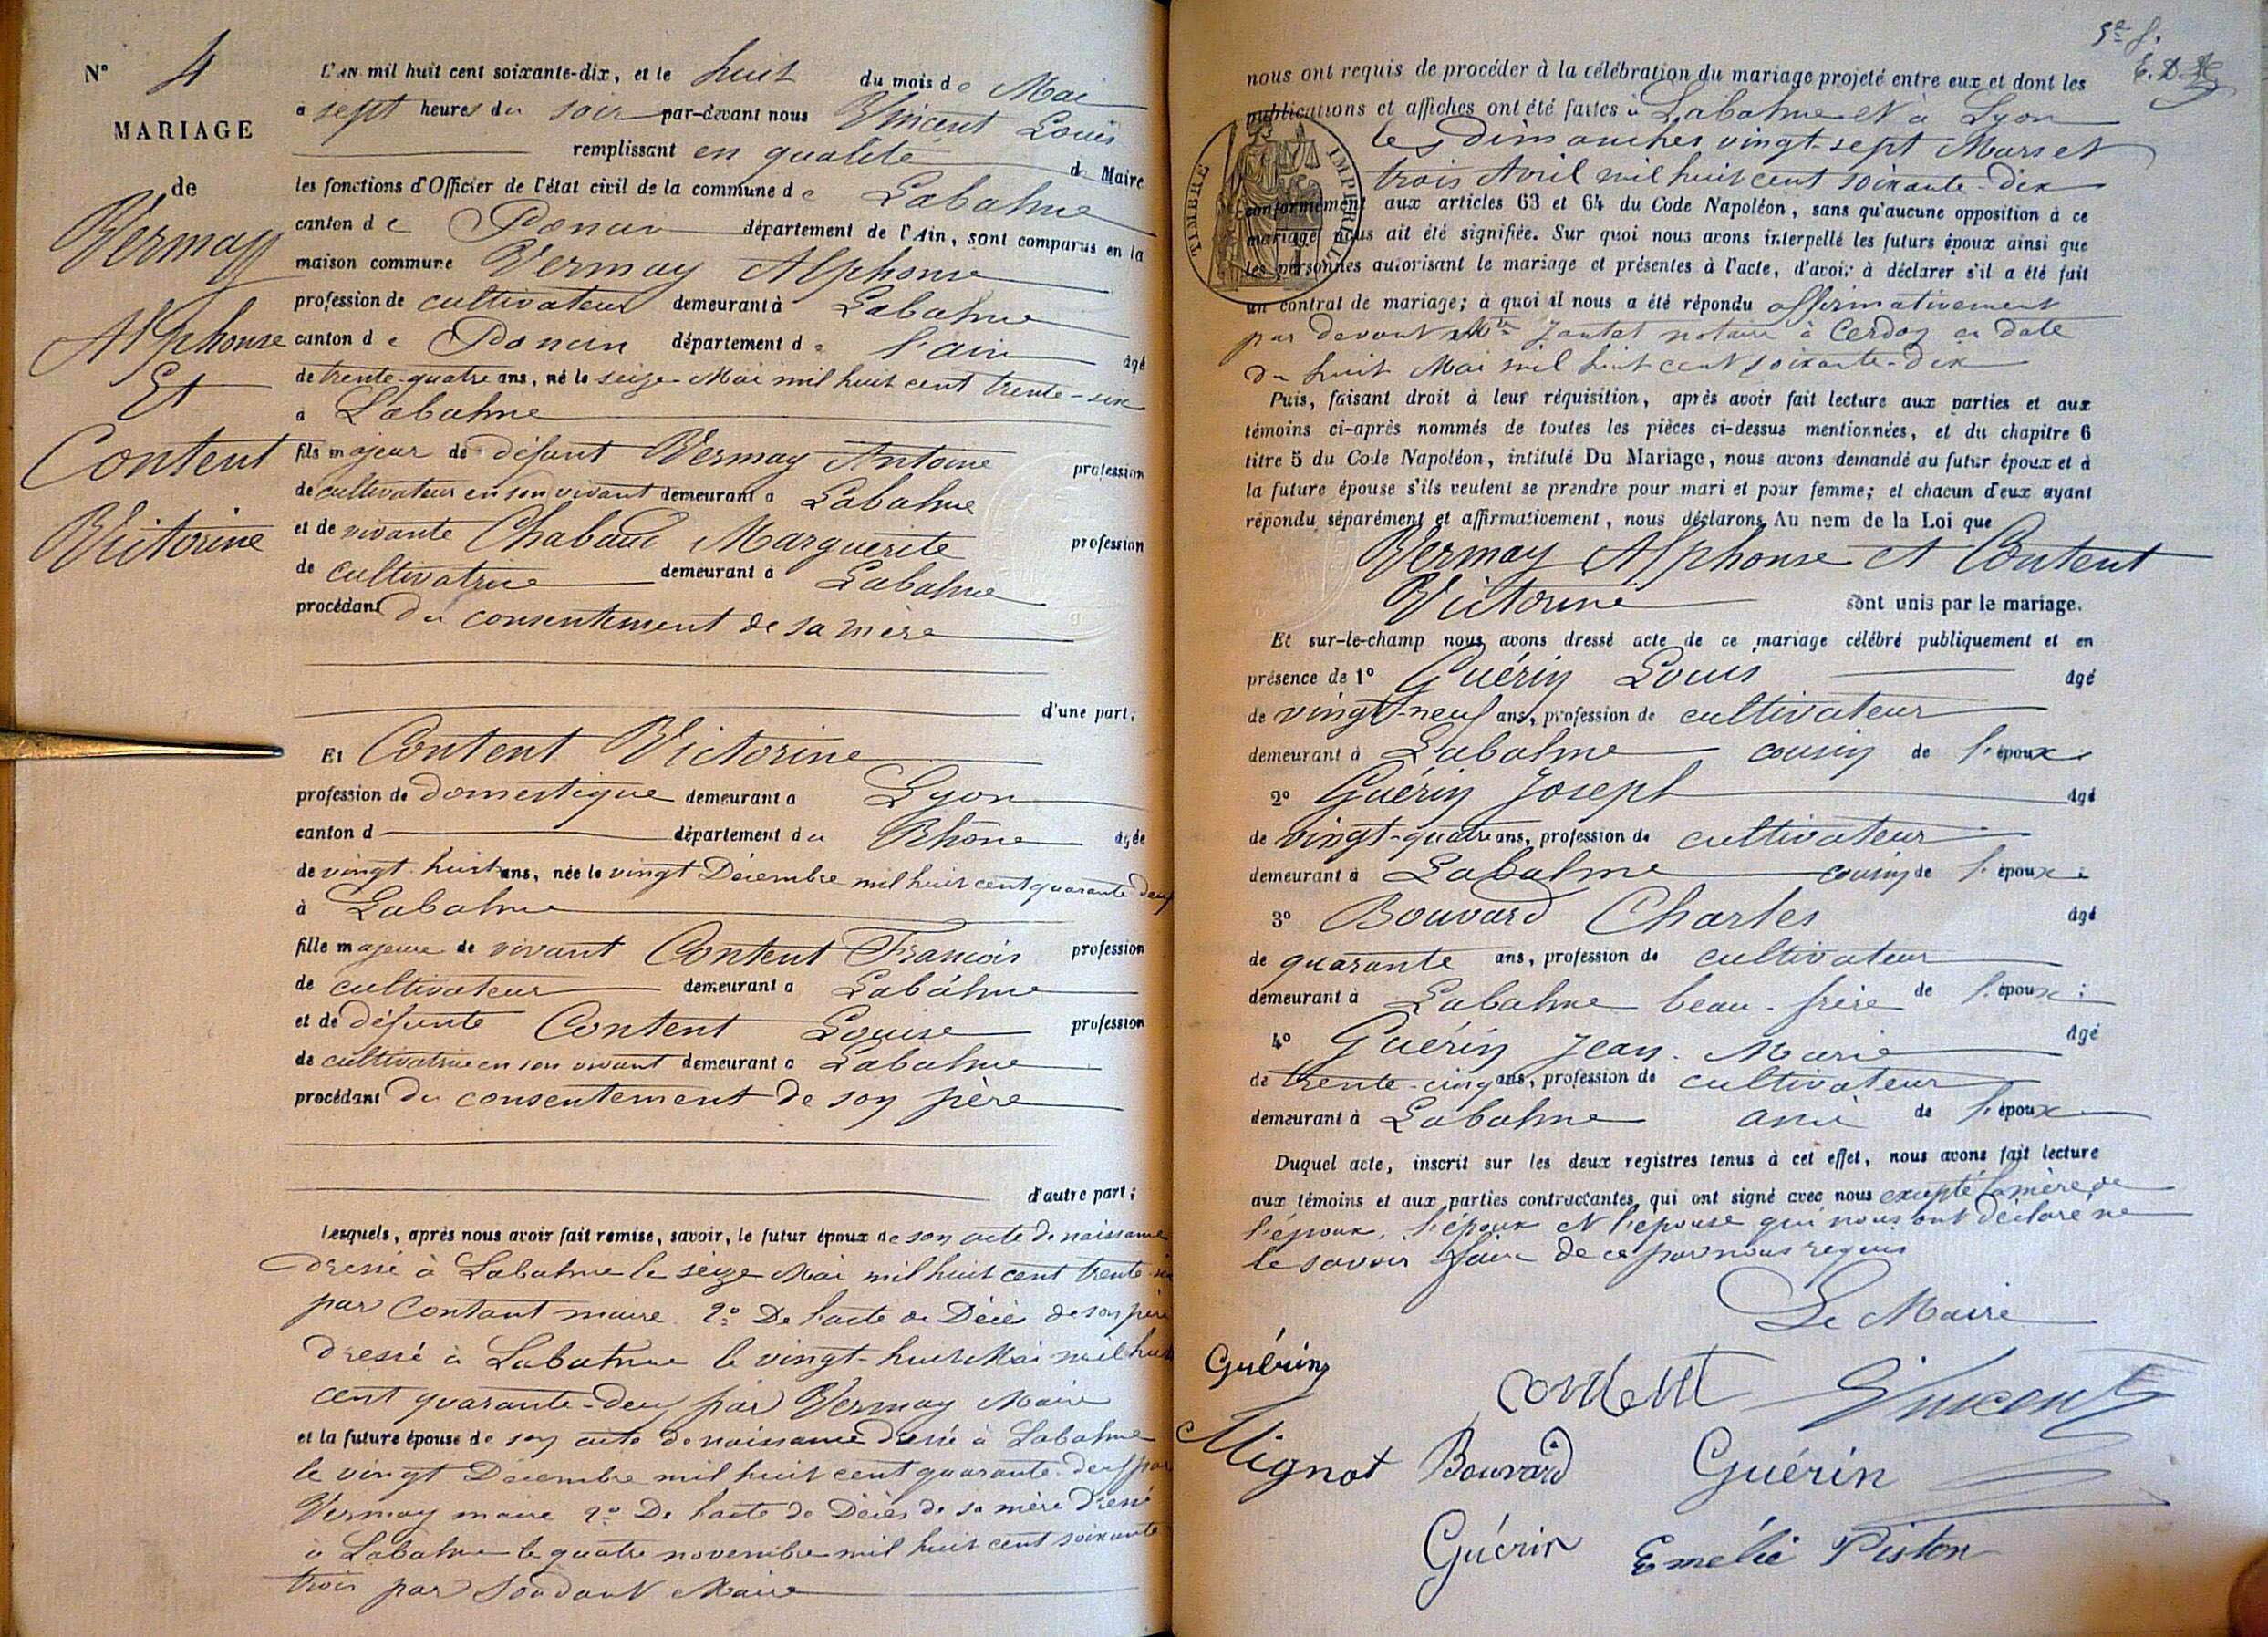 N° 4
MARIAGE
de
Vermay
Alphonse
Et
Content
Victorine
L'AN mil huit cent soixante-dix, et le huit du mois de Mai
a sept heures du soir par-devant nous Vincent Louis
remplissant en qualité de Maire
les fonctions d'Officier de l'état civil de la commune de Labalme
canton de Poncin département de l'Ain, sont comparus en la
maison commune Vermay Alphonse
profession de cultivateur demeurant à Labalme
canton de Poncin département de l'ain âgé
de trente-quatre ans, né le seize Mai mil huit cent trente-six
a Labalme
fils majeur de défunt Vermay Antoine profession
de cultivateur en son vivant demeurant a Labalme
et de vivante Chabaud Marguerite profession
de cultivatrice demeurant à Labalme
procédant du consentement de sa mère
d'une part;
Et Content Victorine
profession de domestique demeurant a Lyon
canton d département du Rhône âgée
de vingt-huit ans, née le vingt Décembre mil huit cent quarante deux
à Labalme
fille majeure de vivant Content François profession
de cultivateur demeurant a Labalme
et de défunte Content Louise profession
de cultivatrice en son vivant demeurant a Labalme
procédant du consentement de son père
d'autre part;
Lesquels, après nous avoir fait remise, savoir, le futur époux de son acte de naissance
dressé à Labalme le seize Mai mil huit cent trente-six
par Contant maire. 2° De l'acte de Décès de son père
dressé à Labalme le vingt-huit Mai mil huit
cent quarante-deux par Vermay Maire
et la future épouse de son acte de naissance dressé à Labalme
le vingt Décembre mil huit cent quarante-deux par
Vermay maire 2° De l'acte de Décès de sa mère dressé
à Labalme le quatre novembre mil huit cent soixante
trois par Soudant Maire
5e f.
E. D.
nous ont requis de procéder à la célébration du mariage projeté entre eux et dont les
publications et affiches ont été faites à Labalme et à Lyon
les dimanches vingt-sept Mars et
trois Avril mil huit cent soixante-dix
TIMBRE IMPERIAL
conformément aux articles 63 et 64 du Code Napoléon, sans qu'aucune opposition à ce
mariage nous ait été signifiée. Sur quoi nous avons interpellé les futurs époux ainsi que
les personnes autorisant le mariage et présentes à l'acte, d'avoir à déclarer s'il a été fait
un contrat de mariage; à quoi il nous a été répondu affirmativement
par devant Mtre Jantet notaire à Cerdon en date
du huit Mai mil huit cent soixante-dix
Puis, faisant droit à leur réquisition, après avoir fait lecture aux parties et aux
témoins ci-après nommés de toutes les pièces ci-dessus mentionnées, et du chapitre 6
titre 5 du Code Napoléon, intitulé Du Mariage, nous avons demandé au futur époux et à
la future épouse s'ils veulent se prendre pour mari et pour femme; et chacun d'eux ayant
répondu séparément et affirmativement, nous déclarons Au nom de la Loi que
Vermay Alphonse et Content
Victorine sont unis par le mariage.
Et sur-le-champ nous avons dressé acte de ce mariage célébré publiquement et en
présence de 1° Guérin Louis âgé
de vingt-neuf ans, profession de cultivateur
demeurant à Labalme cousin de l'époux
2° Guérin Joseph âgé
de vingt-quatre ans, profession de cultivateur
demeurant à Labalme cousin de l'époux;
3° Bouvard Charles âgé
de quarante ans, profession de cultivateur
demeurant à Labalme beau-frère de l'époux;
4° Guérin Jean-Marie âgé
de trente-cinq ans, profession de cultivateur
demeurant à Labalme ami de l'époux
Duquel acte, inscrit sur les deux registres tenus à cet effet, nous avons fait lecture
aux témoins et aux parties contractantes, qui ont signé avec nous excepté la mère de
l'époux, l'époux et l'épouse qui nous ont déclaré ne
le savoir faire de ce par nous requis
Le Maire
Guérin
content Vincent
Mignot Bouvard Guérin
Guérin Emélie Piston